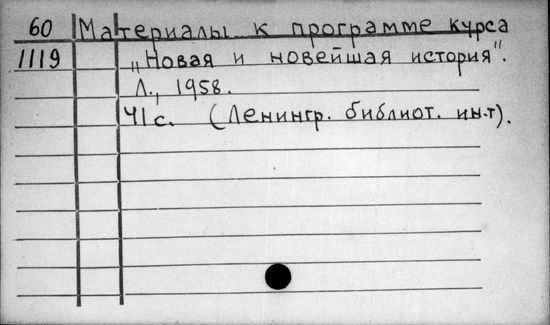 60 Материалы к программе курса
1119 „Новая и новейшая история".
Л., 1958.
41с. (Ленингр. библиот. ин-т).